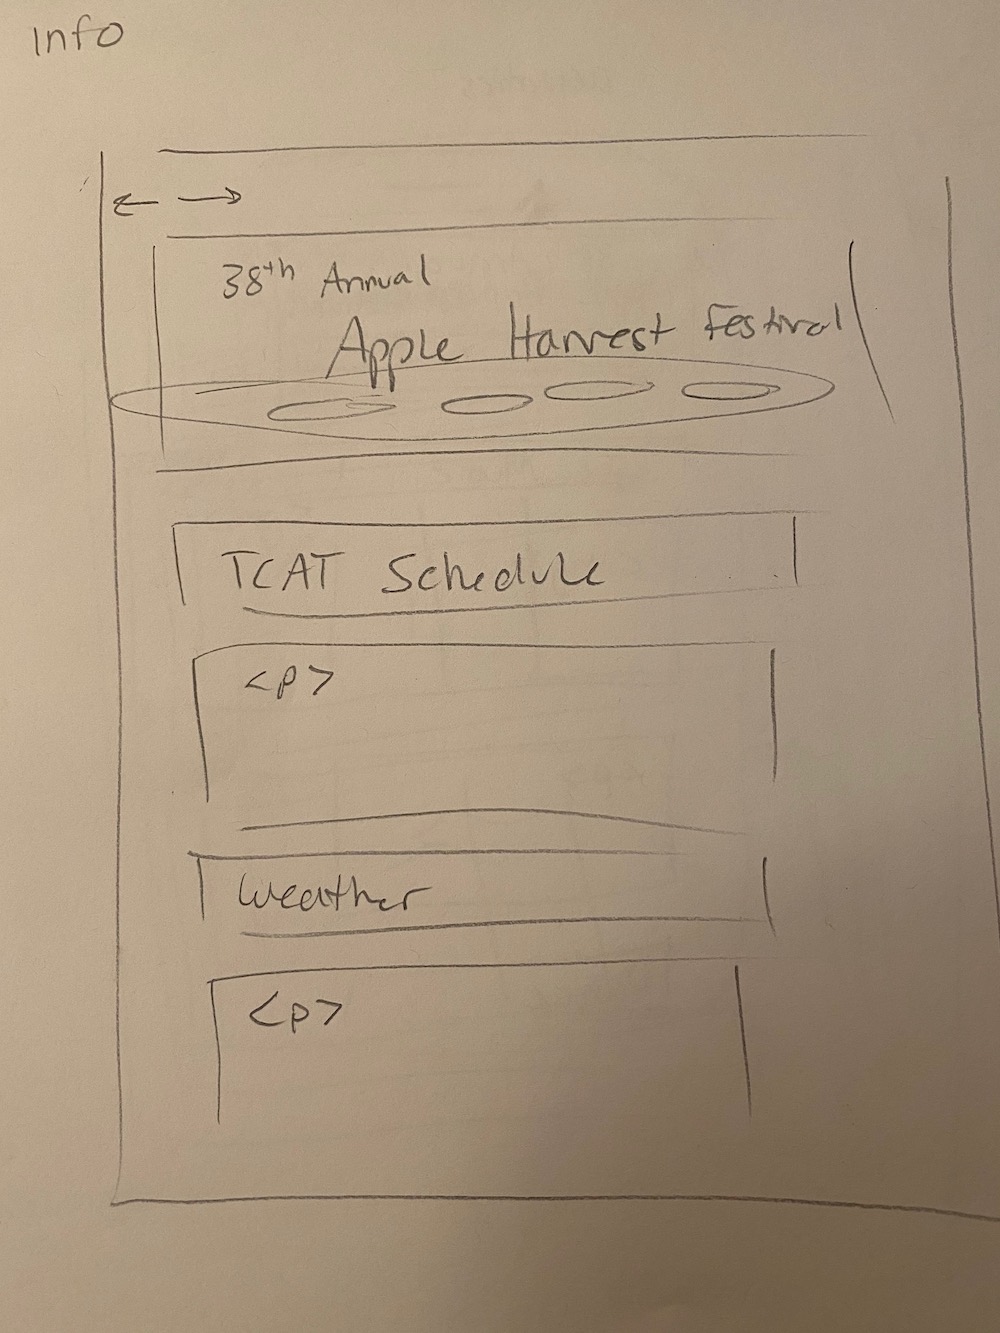 Info
38th Annual
Apple Harvest Festival
TCAT Schedule
<p>
Weather
<p>